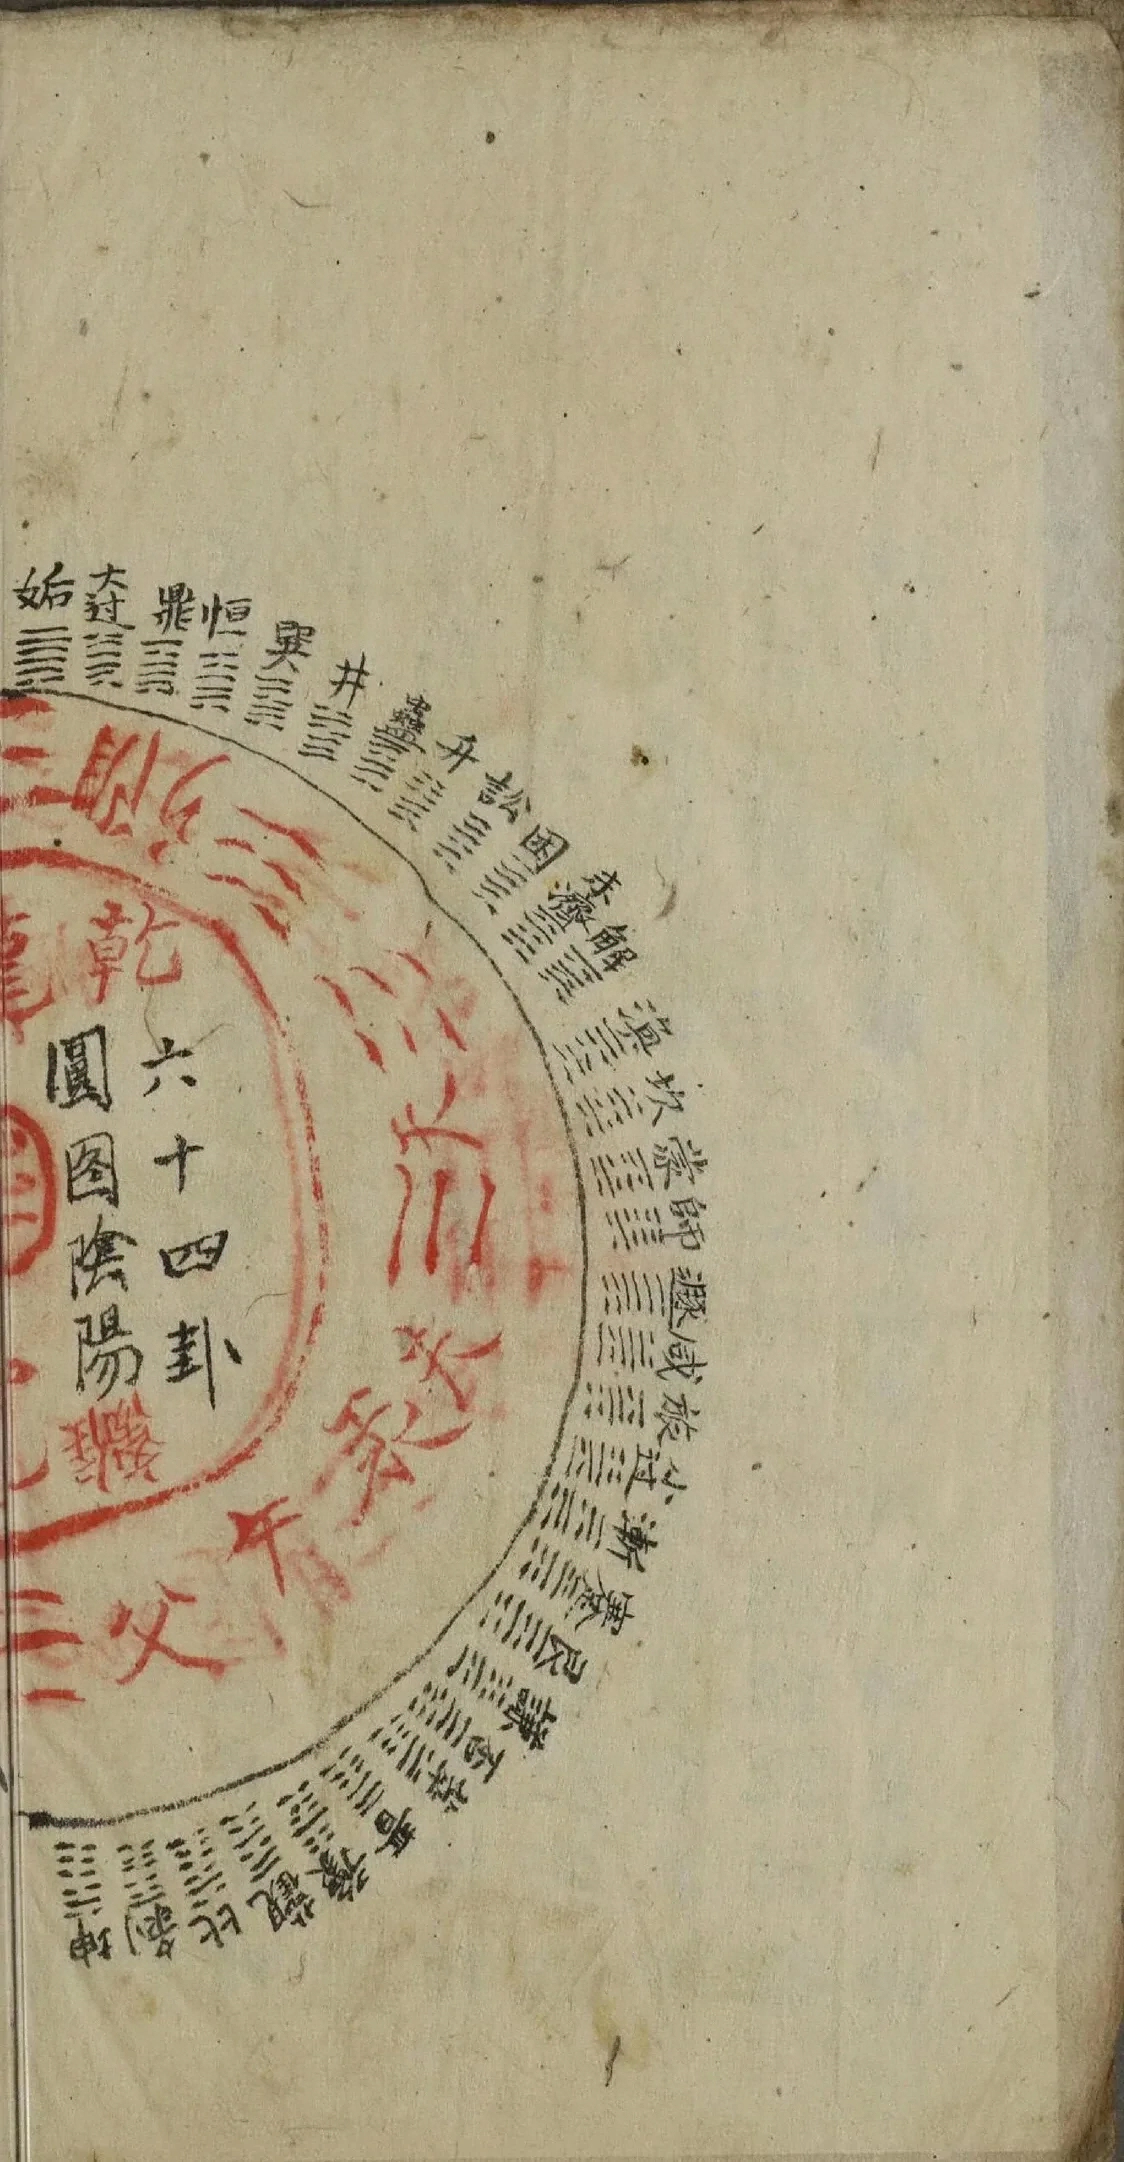 姤
大过
鼎
恒
巽
井
蠱
升
訟
困
未濟
解
渙
坎
蒙
師
遯
咸
旅
小过
漸
蹇
艮
謙
否
萃
晋
豫
觀
比
剝
坤
乾
六十四卦
圓图陰陽
父